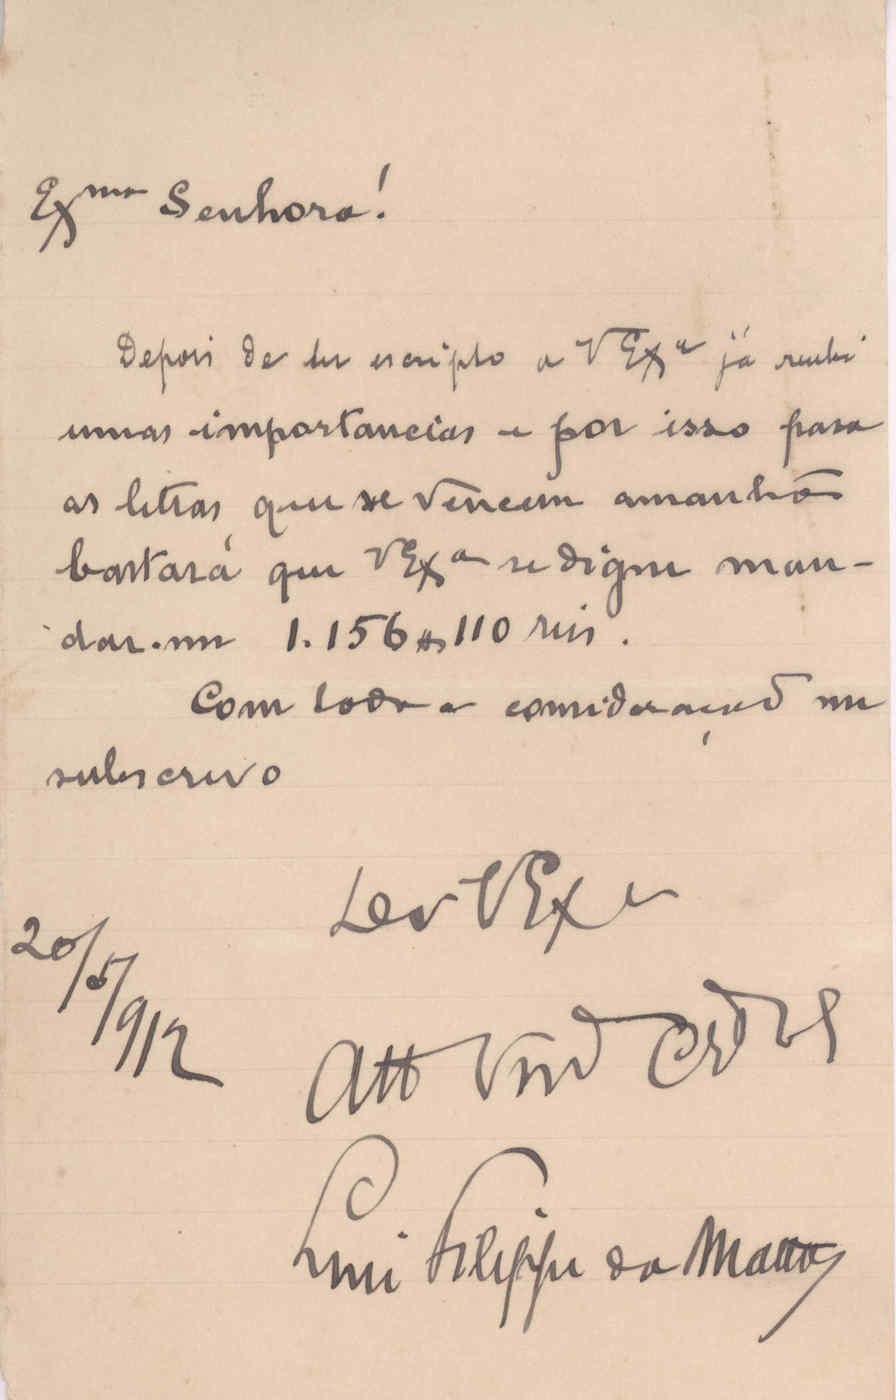 Exma Senhora!
Depois de ter escripto a VExa já recebi
umas importancias e por isso para
as letras que se vencem amanhã
bastará que VExa se digne man-
dar-me 1.156$110 reis.
Com toda a consideração me
subscrevo
De VExa
20/5/912
Att Vnd Crd
Luis Filippe da Matta